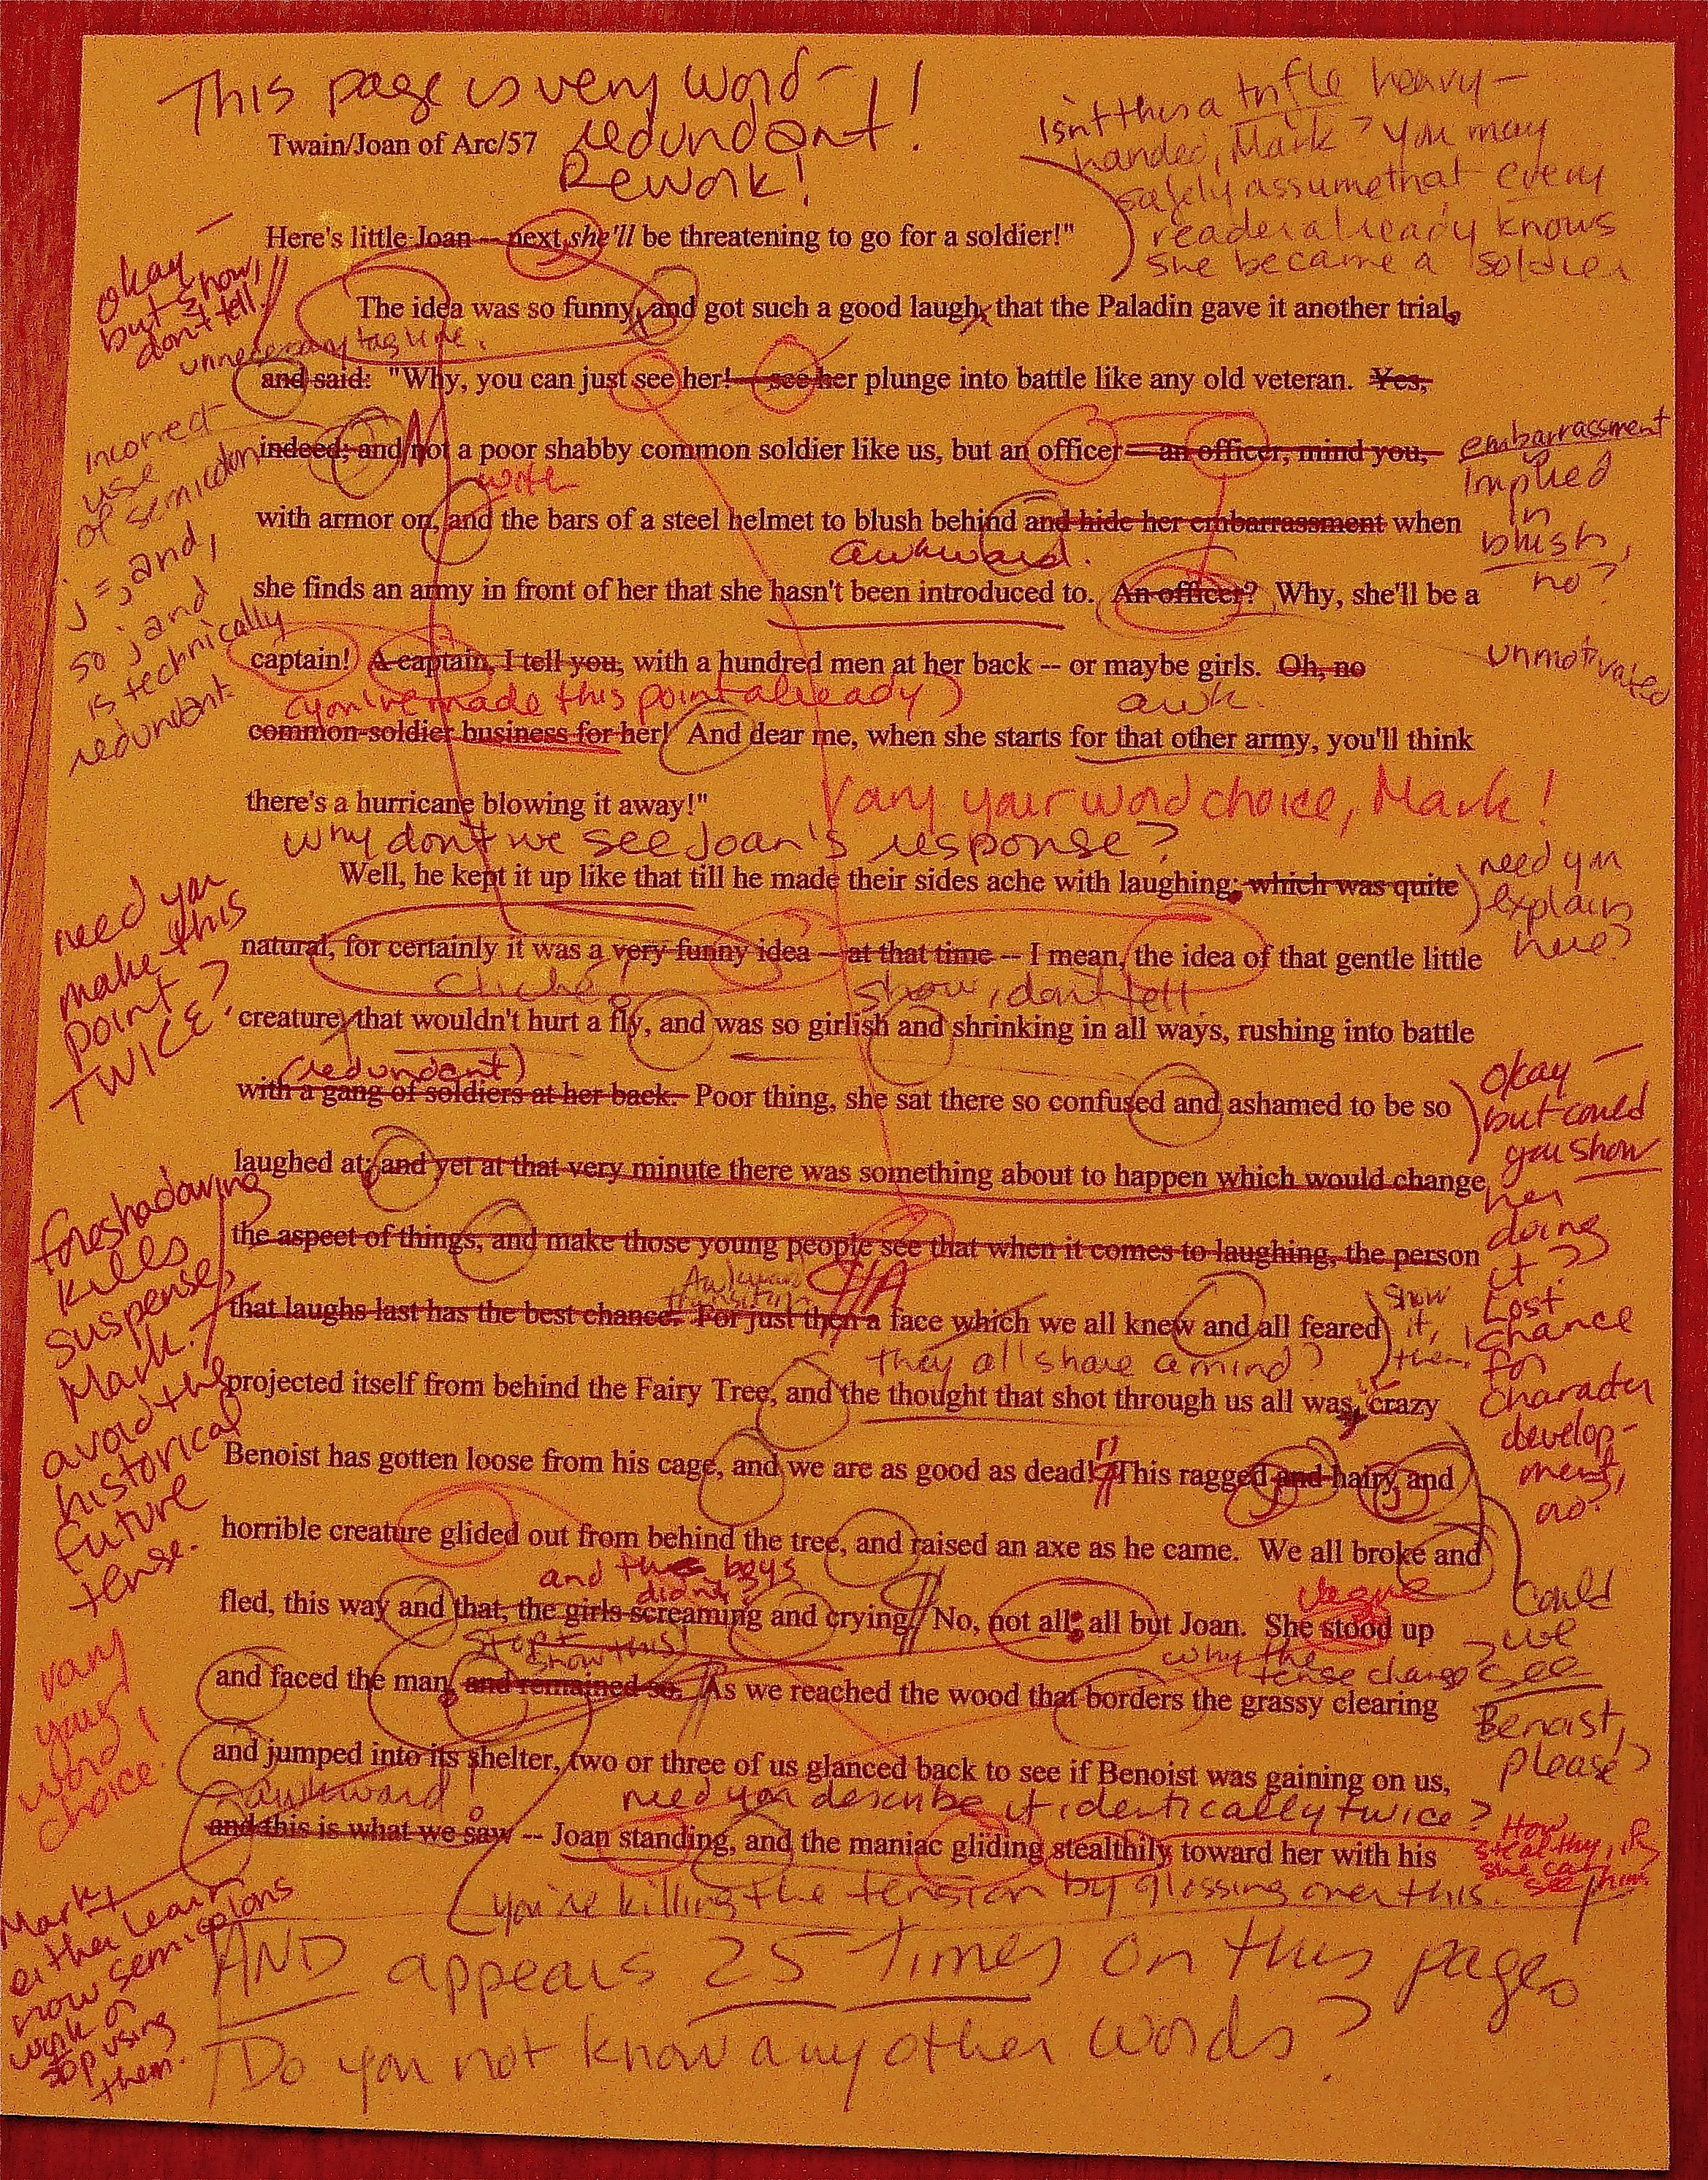 This page is very word-
redundant!!
Rework!
Isn't this a trifle heavy-
handed, Mark? You may
safely assume that every
reader already knows
she became a soldier
Twain/Joan of Arc/57
Here's little Joan -- next she'll be threatening to go for a soldier!"
okay -
but show,
don't tell!
The idea was so funny, and got such a good laugh, that the Paladin gave it another trial,
unnecessary tag line.
and said: "Why, you can just see her! -- see her plunge into battle like any old veteran. Yes,
incorrect
use
of semicolon
; = , and,
so ; and
is technically
redundant.
indeed; and not a poor shabby common soldier like us, but an officer -- an officer, mind you,
embarrassment
implied
in
blush,
no?
with
with armor on, and the bars of a steel helmet to blush behind and hide her embarrassment when
awkward.
she finds an army in front of her that she hasn't been introduced to. An officer? Why, she'll be a
captain! A captain, I tell you, with a hundred men at her back -- or maybe girls. Oh, no
unmotivated
(you've made this point already)
awk.
common-soldier business for her! And dear me, when she starts for that other army, you'll think
there's a hurricane blowing it away!"
Vary your word choice, Mark!
Why don't we see Joan's response?
Well, he kept it up like that till he made their sides ache with laughing; which was quite
need you
explain
here?
need you
make this
point
TWICE?
natural, for certainly it was a very funny idea -- at that time -- I mean, the idea of that gentle little
Cliché!
show, don't tell.
creature, that wouldn't hurt a fly, and was so girlish and shrinking in all ways, rushing into battle
(redundant)
with a gang of soldiers at her back. Poor thing, she sat there so confused and ashamed to be so
okay -
but could
you show
her
doing
it?
Lost
chance
for
character
develop-
ment,
no?
laughed at; and yet at that very minute there was something about to happen which would change
foreshadowing
kills
suspense,
Mark.
avoid the
historical
future
tense.
the aspect of things, and make those young people see that when it comes to laughing, the person
Awkward
transition
that laughs last has the best chance. For just then a face which we all knew and all feared
A
show
it,
then.
they all share a mind?
projected itself from behind the Fairy Tree, and the thought that shot through us all was, crazy
Benoist has gotten loose from his cage, and we are as good as dead! This ragged and hairy and
horrible creature glided out from behind the tree, and raised an axe as he came. We all broke and
Could
we
see
Benoist,
please?
and the boys
didn't?
fled, this way and that, the girls screaming and crying. No, not all; all but Joan. She stood up
Vague
vary
your
word
choice.
show this)
why the
tense change?
and faced the man, and remained so. As we reached the wood that borders the grassy clearing
and jumped into its shelter, two or three of us glanced back to see if Benoist was gaining on us,
awkward
need you describe it identically twice?
and this is what we saw -- Joan standing, and the maniac gliding stealthily toward her with his
How
stealthy, if
she can
see him?
(you're killing the tension by glossing over this.
Mark,
either learn
how semicolons
work or
stop using
them.
AND appears 25 times on this page.
Do you not know any other words?